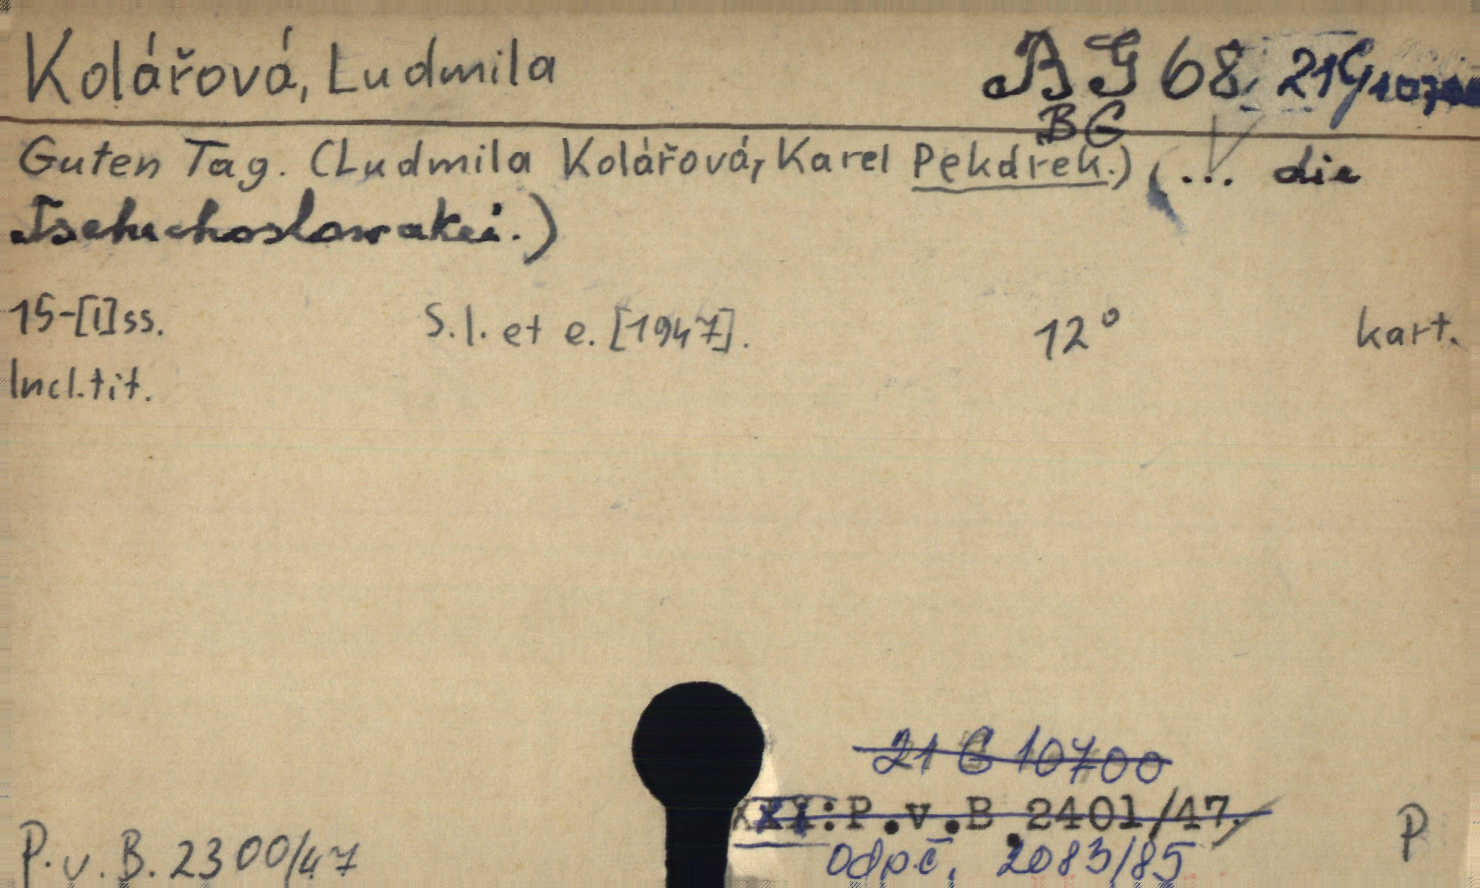 Kolářová, Ludmila BG 68 21G10700
BG
Guten Tag. (Ludmila Kolářová, Karel Pekárek.) (... die
Tschechoslowakei.)
15-[1]ss. S.l. et e. [1947]. 12° kart.
Incl.tit.
21 G 10700
XXX:P.v.B.2401/47. P
P.v.B.2300/47 odpč. 2083/85